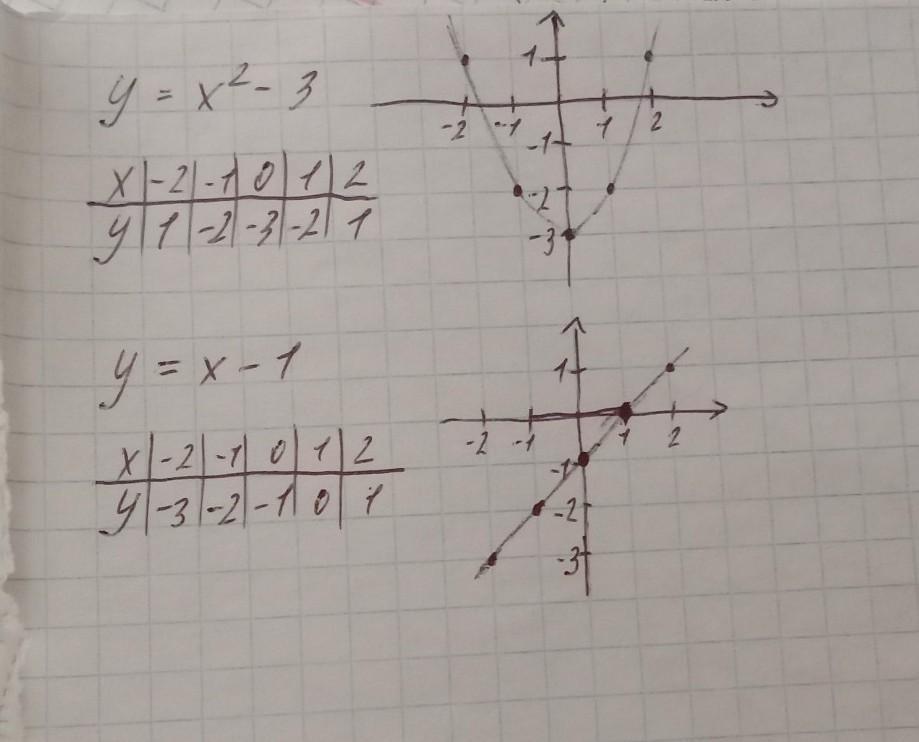 y = x² - 3
x | -2 | -1 | 0 | 1 | 2
y | 1 | -2 | -3 | -2 | 1
1
-2 -1 1 2
-1
-2
-3
y = x - 1
x | -2 | -1 | 0 | 1 | 2
y | -3 | -2 | -1 | 0 | 1
1
-2 -1 1 2
-1
-2
-3